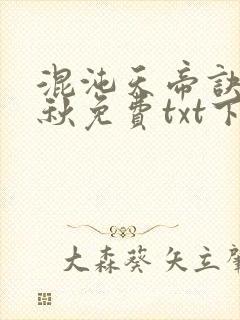 混沌天帝訣
秋免費txt下
大森葵 矢立肇